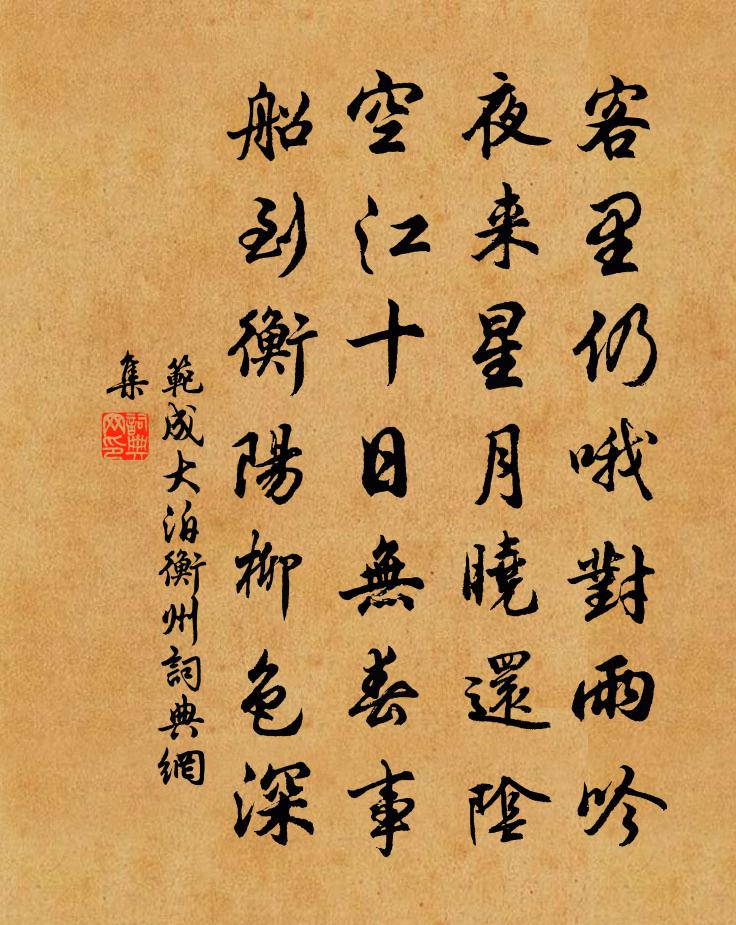 客里仍哦對雨吟
夜来星月曉還陰
空江十日無春事
船到衡陽柳色深
範成大泊衡州詞典網
集
詞典
网印